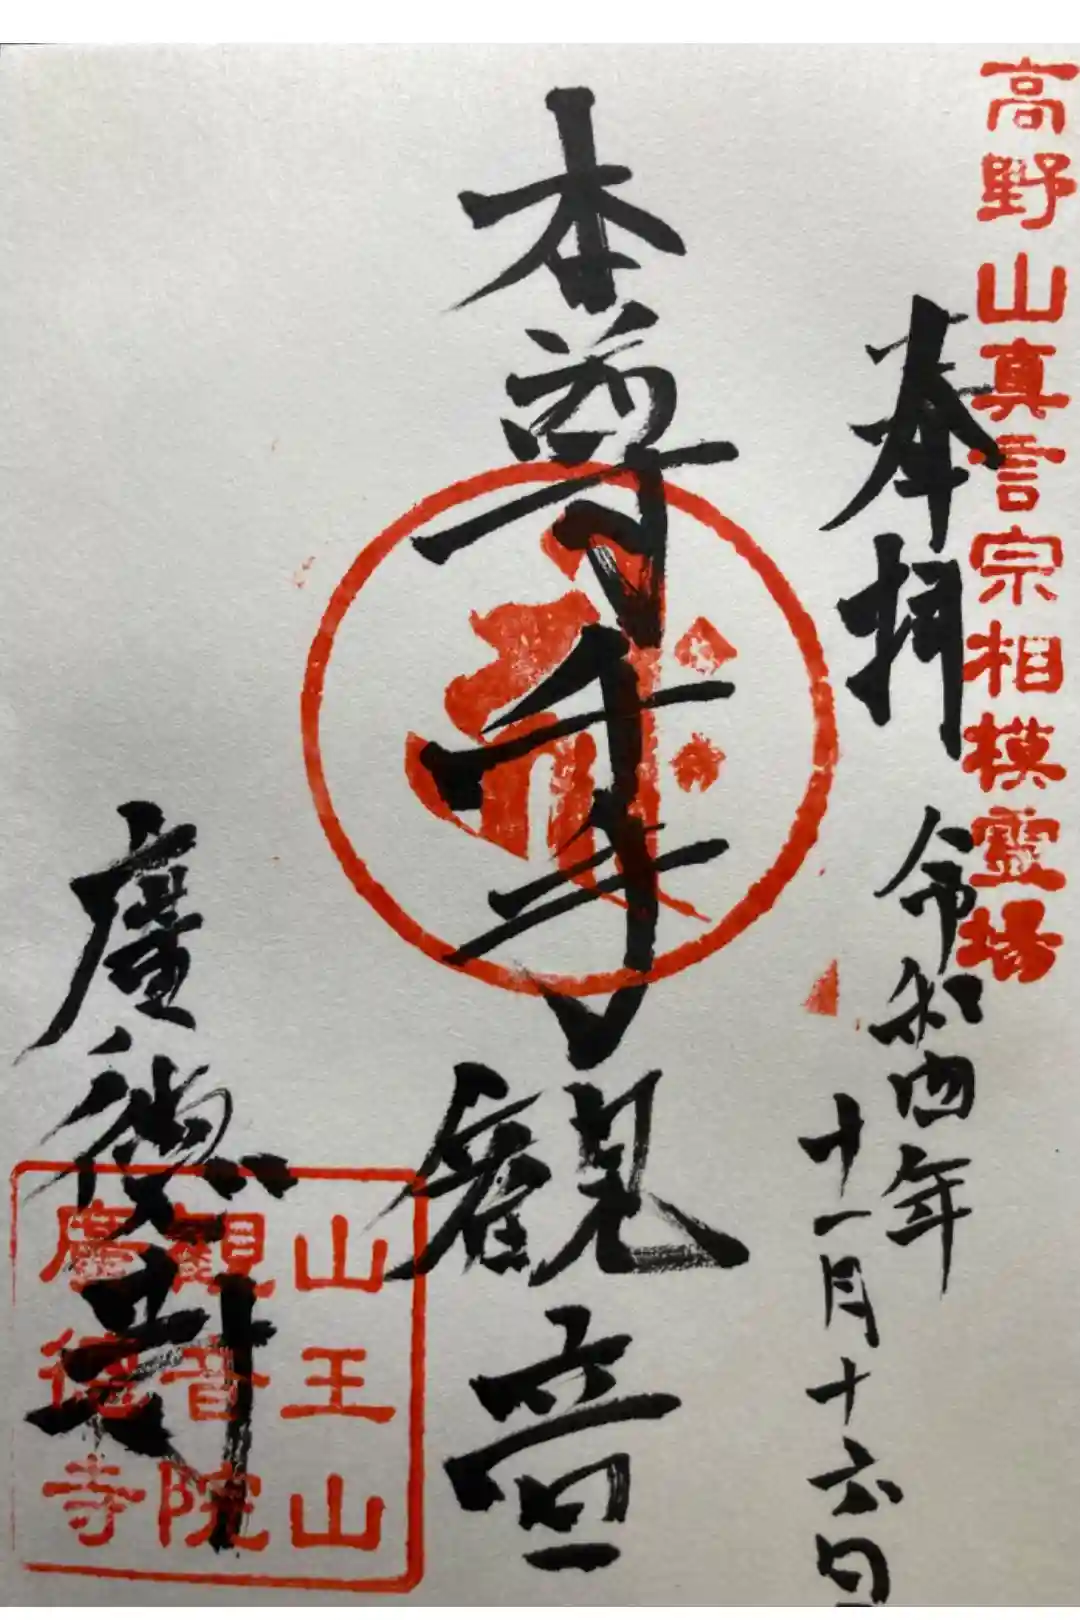 高野山真言宗相模霊場
奉拝
令和四年
十一月十六日
本尊千手観音
山王山
観音院
廣徳寺
廣徳寺